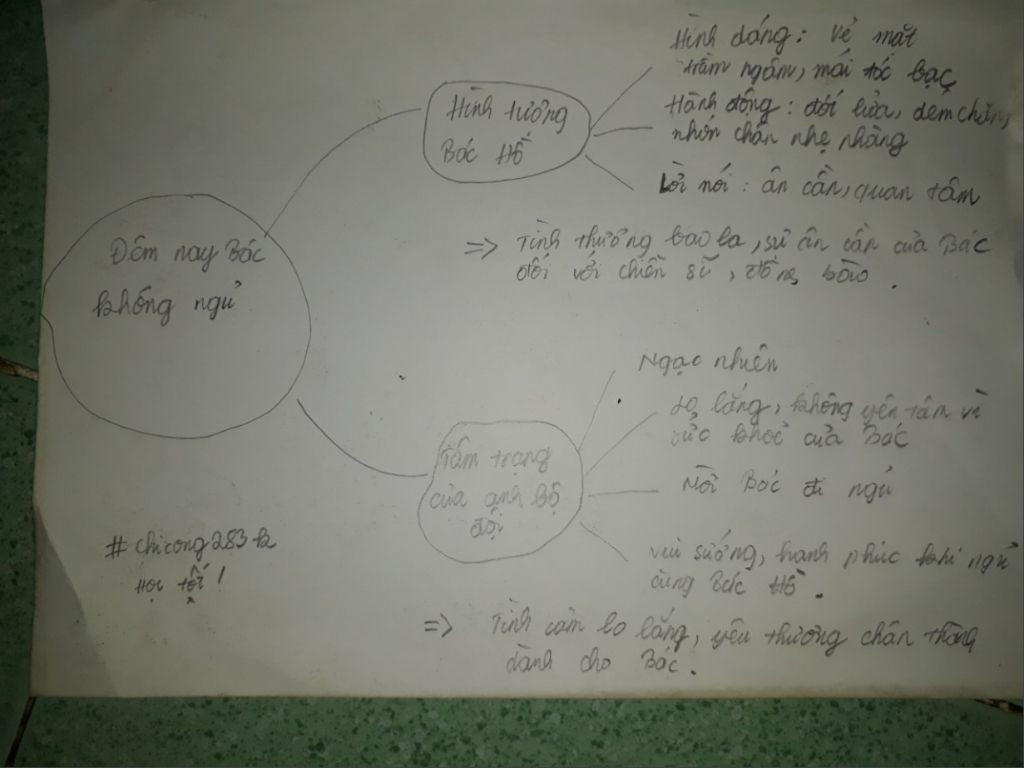 Đêm nay Bác
không ngủ
Hình tượng
Bác Hồ
Hình dáng: vẻ mặt
trầm ngâm, mái tóc bạc
Hành động: đốt lửa, dem chăn,
nhón chân nhẹ nhàng
Lời nói: ân cần, quan tâm
=> Tình thương bao la, sự ân cần của Bác
đối với chiến sĩ, đồng bào.
Tâm trạng
của anh bộ
đội
Ngạc nhiên
lo lắng, không yên tâm vì
sức khoẻ của Bác
Mời Bác đi ngủ
vui sướng, hạnh phúc khi ngủ
cùng Bác Hồ.
=> Tình cảm lo lắng, yêu thương chân thành
dành cho Bác.
# chicong283k
Học tốt!